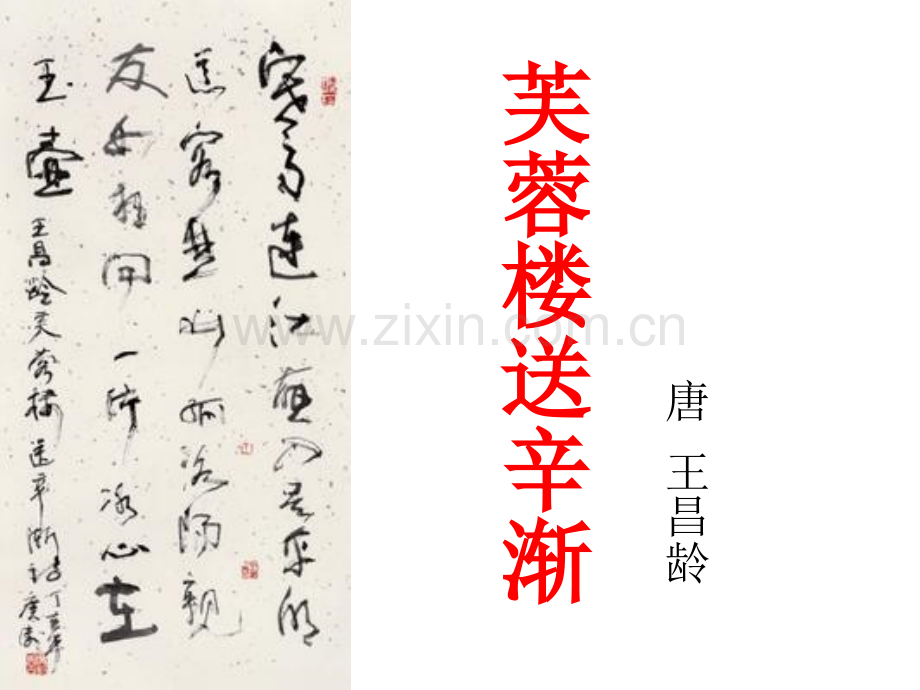 芙蓉楼送辛渐
唐 王昌龄
寒雨連江夜入吴平明
送客楚山孤洛陽親
友如相问一片冰心在
玉壺 王昌龄芙蓉楼送辛渐诗
丁亥年
www.zixin.com.cn